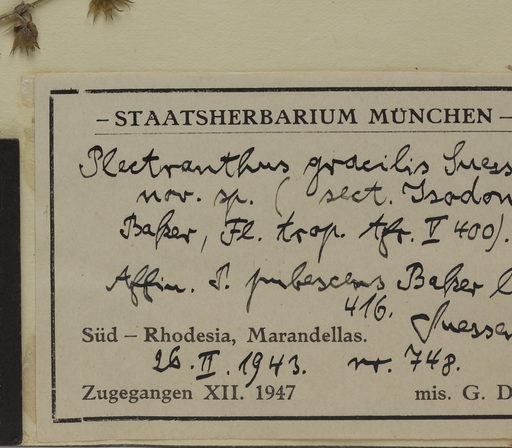 – STAATSHERBARIUM MÜNCHEN –
Plectranthus gracilis Suess
nov. sp. ( sect. Isodon
Baker, Fl. trop. Afr. V 400).
Affin. P. pubescens Baker
416.
Suessen
Süd – Rhodesia, Marandellas.
26. II. 1943. nr. 748.
Zugegangen XII. 1947 mis. G. D